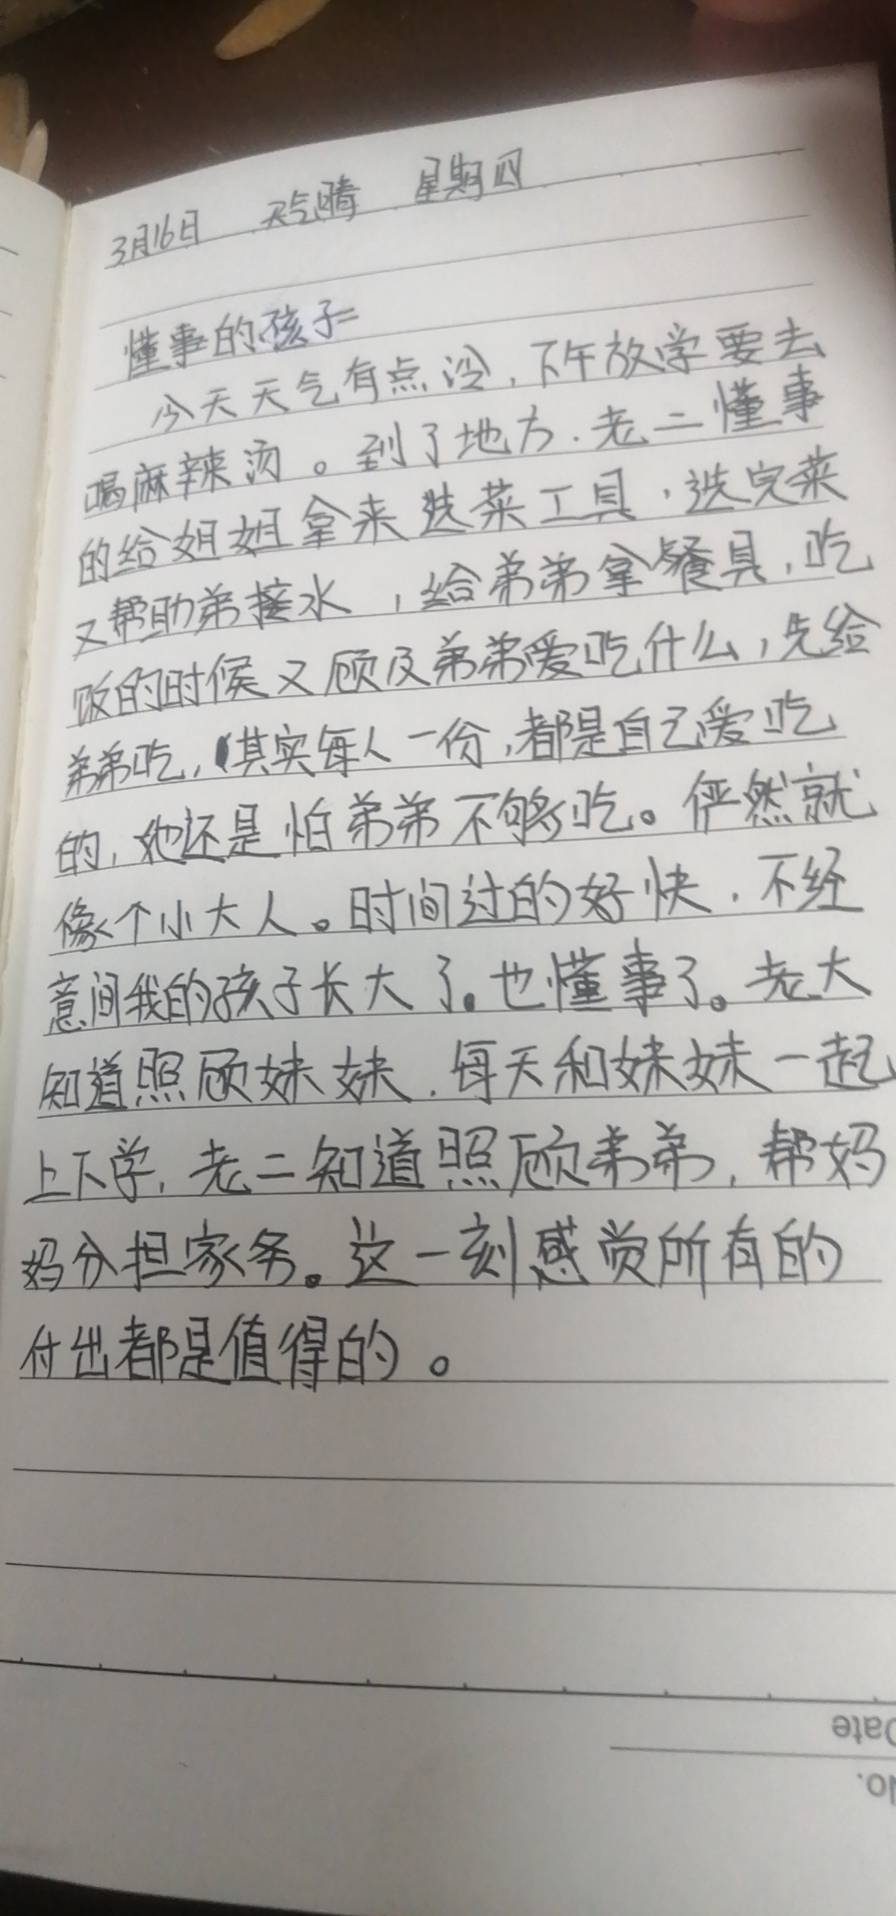 3月16日 天气晴 星期四
懂事的孩子=
今天天气有点冷，下午放学要去
喝麻辣汤。到了地方.老二懂事
的给姐姐拿来选菜工具，选完菜
又帮助弟接水，给弟弟拿餐具，吃
饭的时候又顾及弟弟爱吃什么，先给
弟弟吃，其实每人一份，都是自己爱吃
的，她还是怕弟弟不够吃。俨然就
像个小大人。时间过的好快.不经
意间我的孩子长大了。也懂事了。老大
知道照顾妹妹.每天和妹妹一起
上下学，老二知道照顾弟弟，帮妈
妈分担家务。这一刻感觉所有的
付出都是值得的。
Date
No.